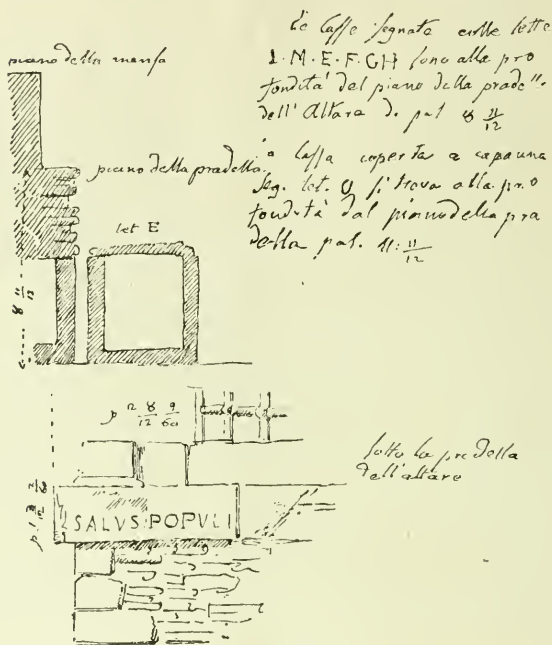 piano della mensa
Le Casse segnate colle lette
I. M. E. F. GH sono alla pro
fondità del piano della prade"
dell'Altare di pal 8 11/12
piano della pradella.
Cassa coperta a capanna
seg. let. si trova alla pro
fondità dal piano della pra
della pal. 11: 11/12
let E
8 11/12
sotto la predella
dell'altare
SALVS POPVLI